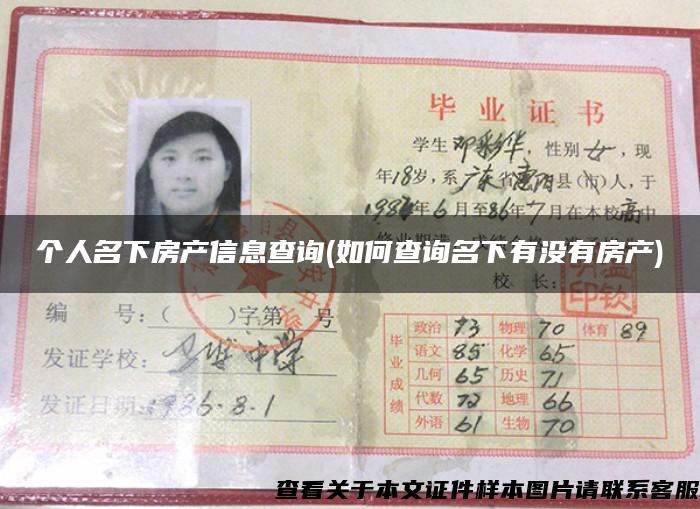 毕业证书
学生邓彩华，性别女，现
年18岁，系广东省惠阳县(市)人，于
1984年6月至86年7月在本校高中
个人名下房产信息查询(如何查询名下有没有房产)
校 长：
编 号：( )字第 号
发证学校： 中学
发证日期：1986.8.1
毕业成绩
政治 73 物理 70 体育 89
语文 85 化学 65
几何 65 历史 71
代数 72 地理 66
外语 61 生物 70
查看关于本文证件样本图片请联系客服